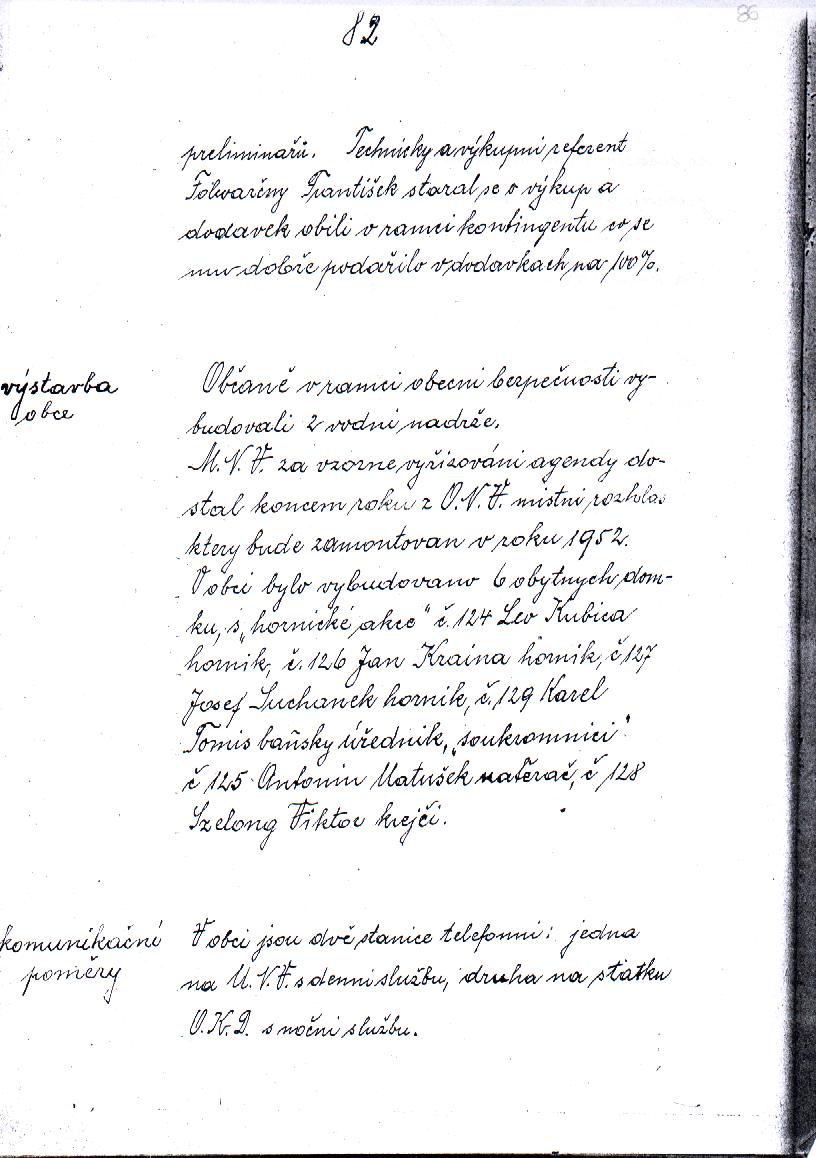 82
86
preliminařů. Technicky a výkupni referent
Folwarčny František staral se o výkup a
dodavek obili v ramci kontingentu co se
mu dobře podařilo v dodavkach na 100%.
výstavba
obce
Občaně v ramci obecni bezpečnosti vy-
budovali 2 vodni nadrže.
M.N.V. za vzorne vyřizováni agendy do-
stal koncem roku z O.N.V. mistni rozhlas
ktery bude zamontovan v roku 1952.
V obci bylo vybudovano 6 obytnych dom-
ku, s „hornické akce" č. 124 Leo Kubica
hornik, č. 126 Jan Kraina hornik, č 127
Josef Suchanek hornik, č. 129 Karel
Tomis baňsky úřednik, „soukromnici"
č 125 Antonin Matušek natěrač, č 128
Szelong Viktor krejči.
komunikační
poměry
V obci jsou dvě stanice telefonni: jedna
na M.N.V. s denni službu, druha na statku
O.K.D. s nočni službu.